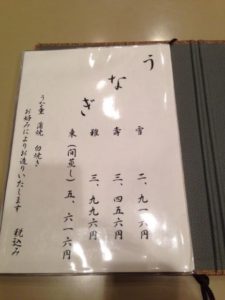 うなぎ
雪 二、九一六円
壽 三、四五六円
雅 三、九九六円
東(間蒸し) 五、六一六円
うな重 蒲焼 白焼き
お好みによりお造りいたします 税込み